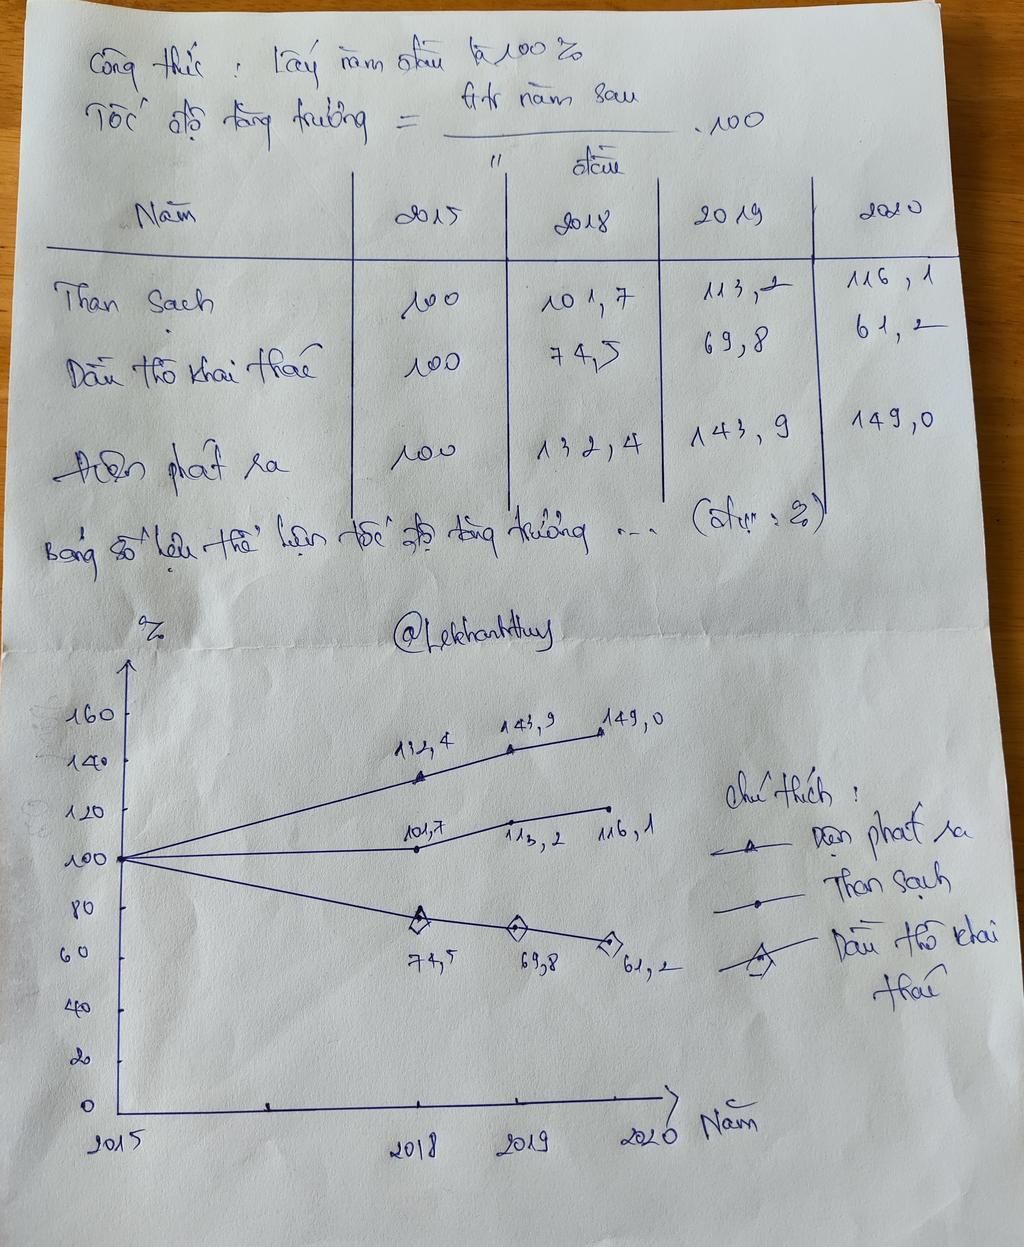 Công thức : Lấy năm đầu là 100 %
Tốc độ tăng trưởng = gtr năm sau / " đầu . 100
Năm 2015 2018 2019 2020
Than sạch 100 101,7 113,2 116,1
Dầu thô khai thác 100 74,5 69,8 61,2
Điện phát ra 100 132,4 143,9 149,0
Bảng số liệu thể hiện tốc độ tăng trưởng ... (đv : %)
@Lekhanhthuy
%
160
140
120
100
80
60
40
20
0
132,4 143,9 149,0
101,7 113,2 116,1
74,5 69,8 61,2
2015 2018 2019 2020 Năm
Chú thích :
Điện phát ra
Than sạch
Dầu thô khai
thác